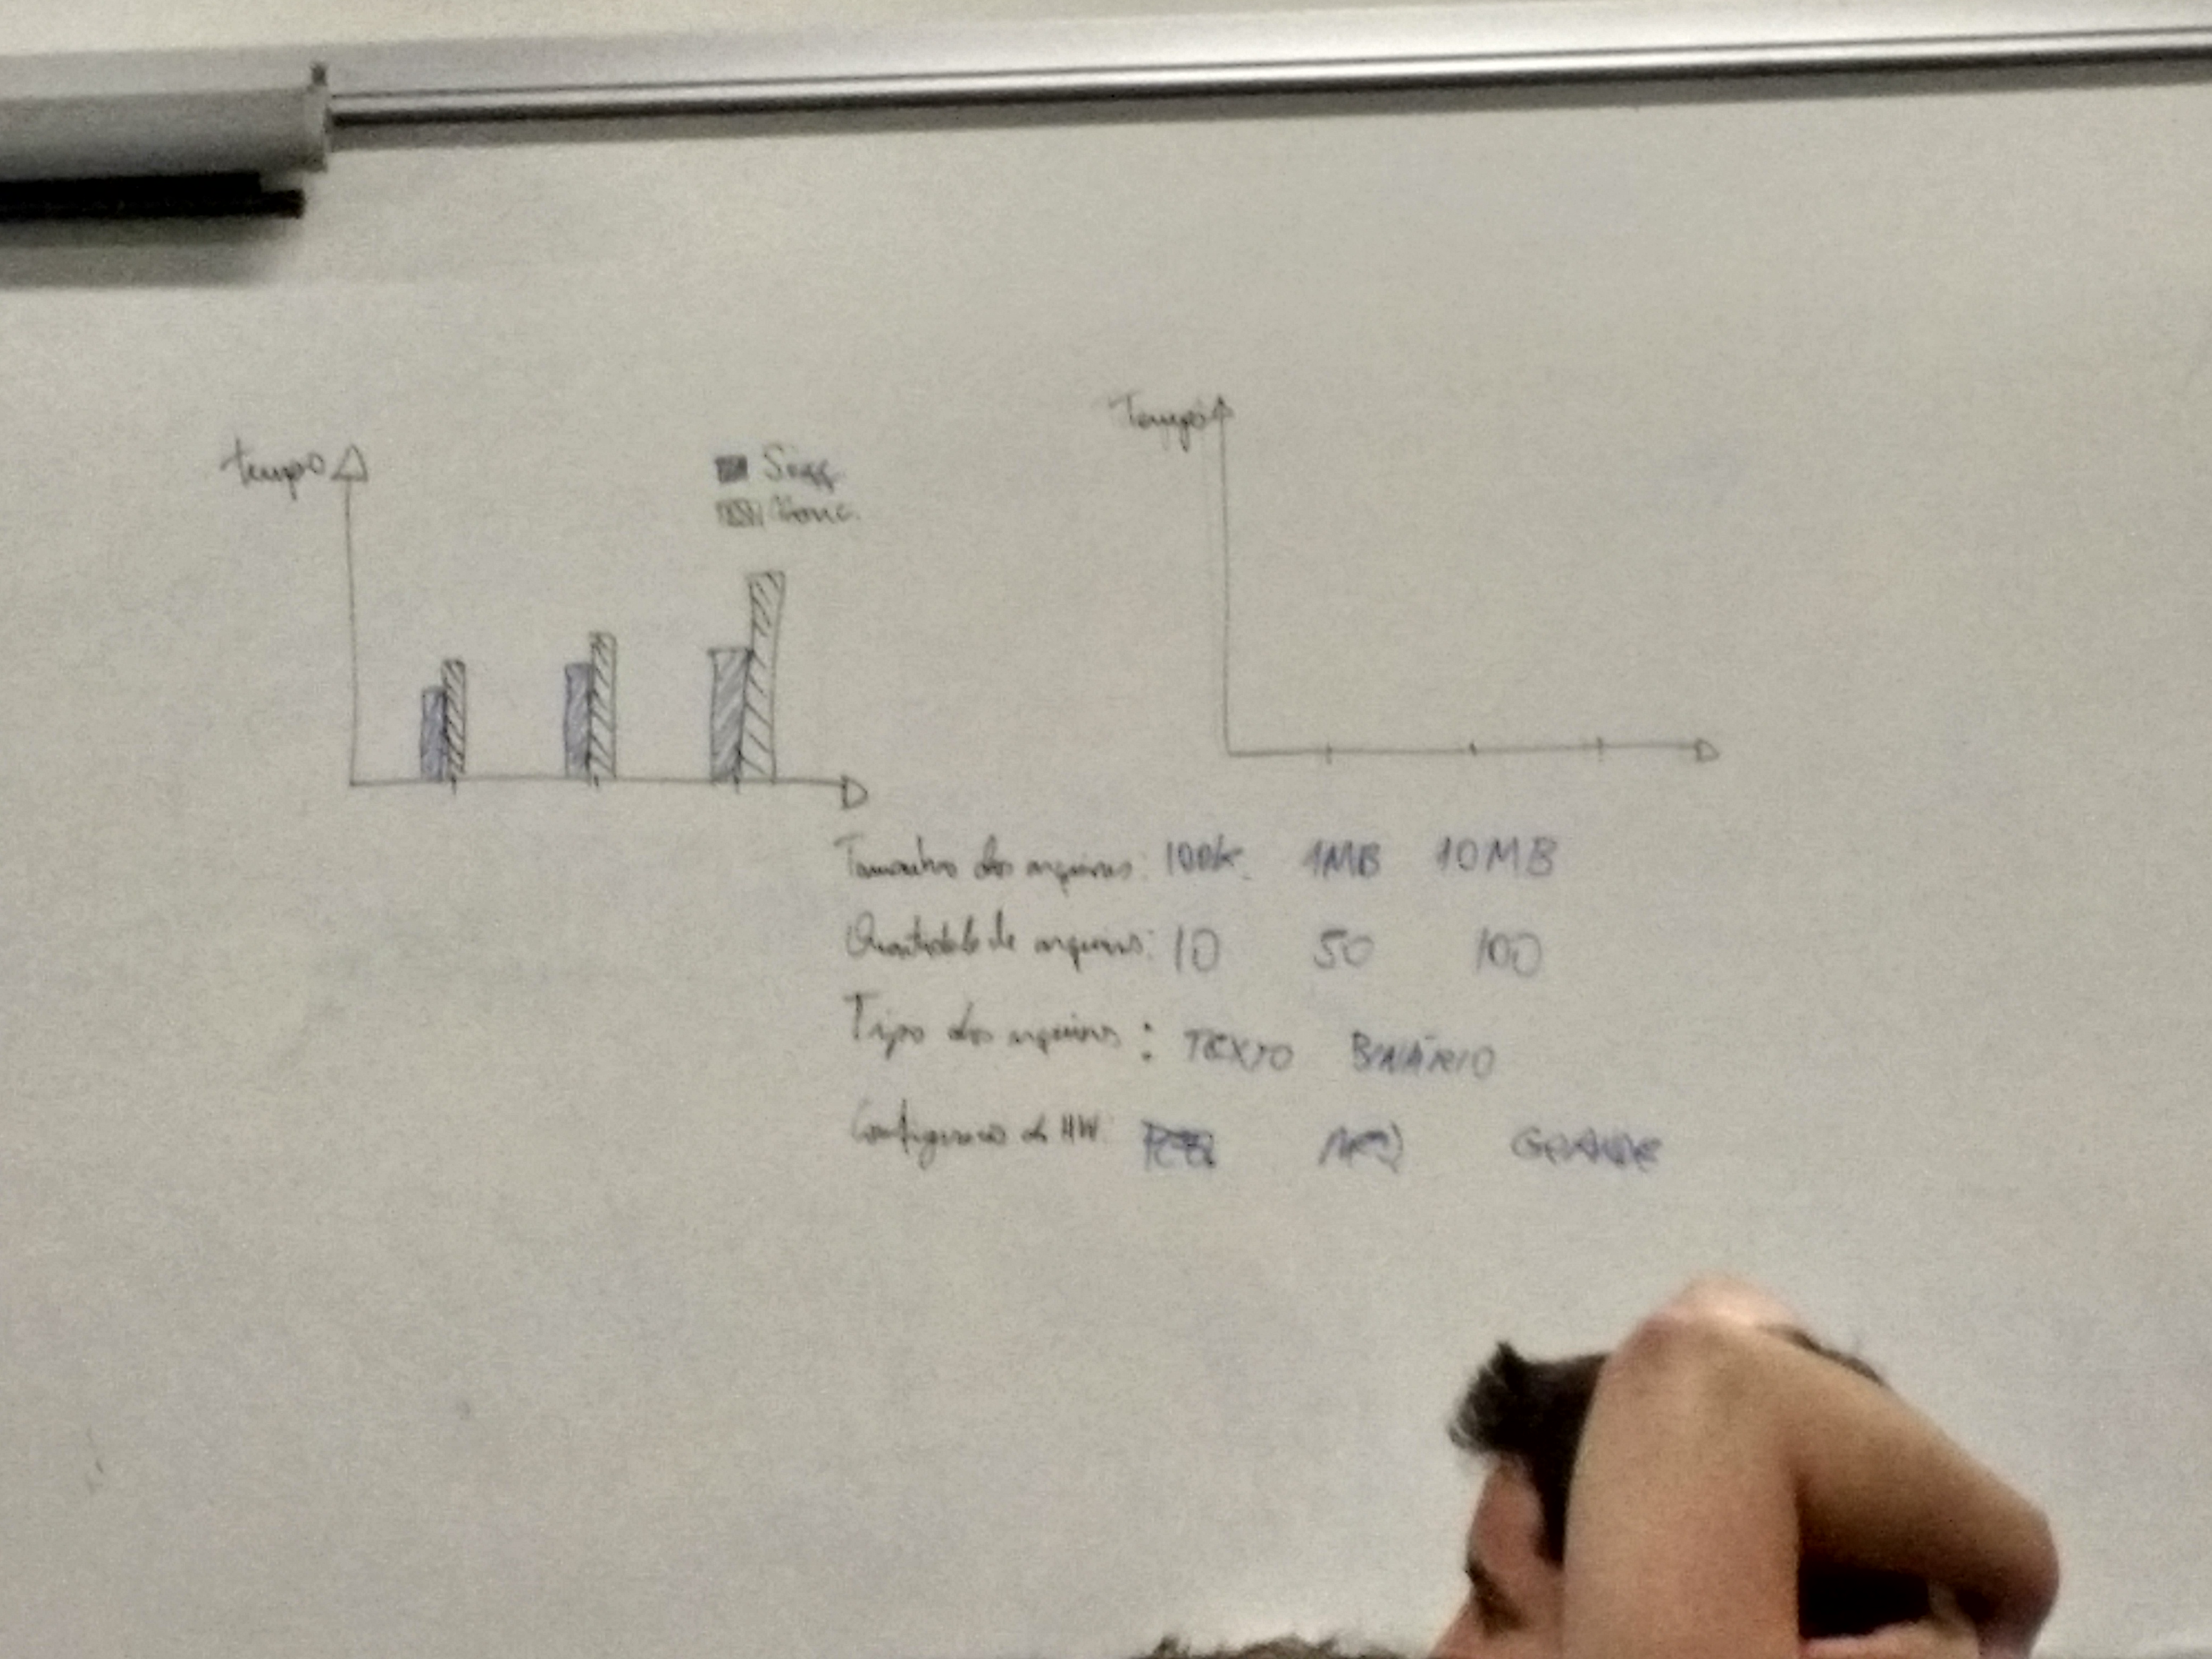 tempo
Tempo
Tamanho dos arquivos: 100K 1MB 10MB
Quantidade de arquivos: 10 50 100
Tipo dos arquivos: TEXTO BINÁRIO
Configuração do HW: GRANDE